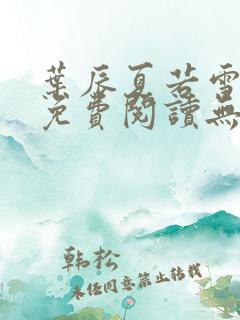 葉辰夏若雪
免費閱讀無
韩松
未经同意禁止转载